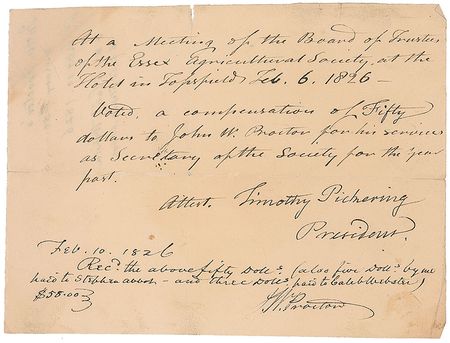 At a Meeting of the Board of Trustees
of the Essex Agricultural Society, at the
Hotel in Topsfield Feb. 6. 1826 —
Voted, a compensation of Fifty
dollars to John W. Proctor for his services
as Secretary of the Society for the year
past.
Attest. Timothy Pickering
President.
Feb. 10. 1826
Rec'd. the above fifty Doll's (also five Doll's by me
paid to Stephen Abbot — and three Doll's paid to Caleb Webster)
$58.00
J W Proctor